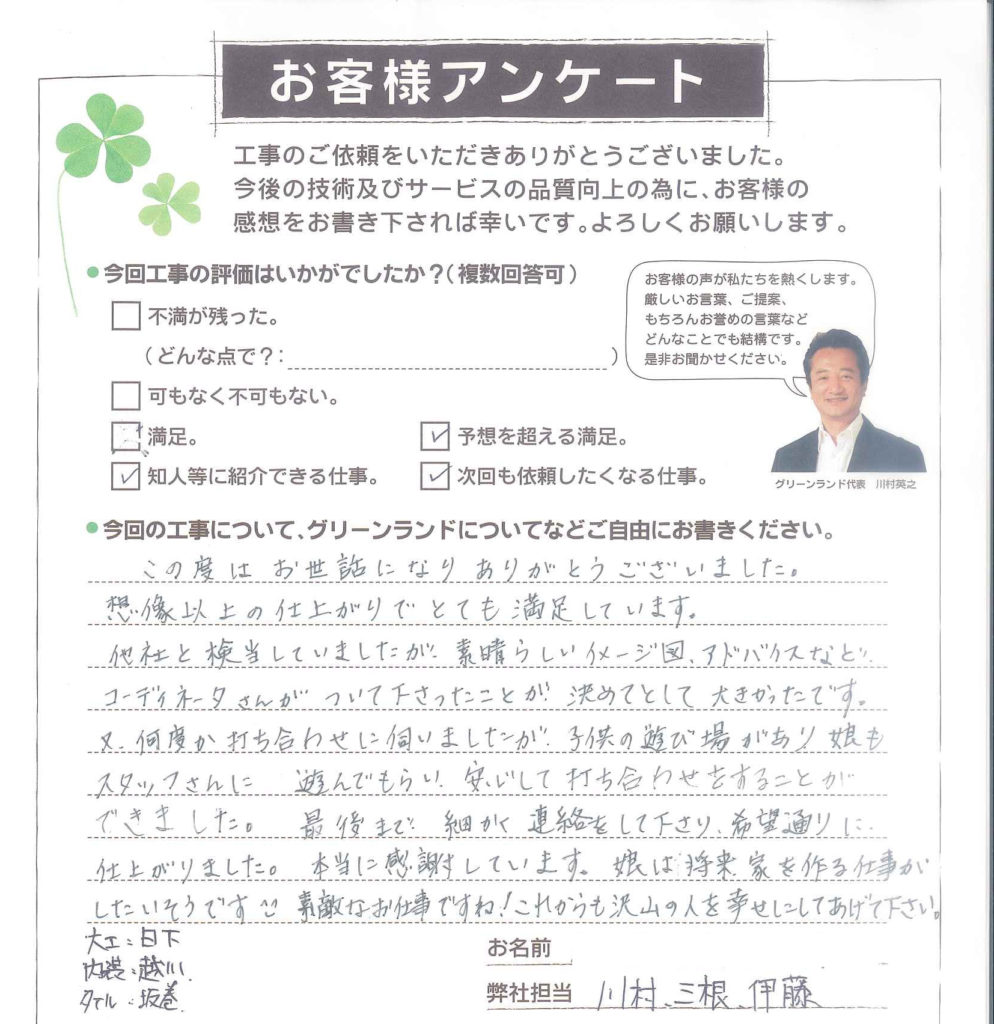 お客様アンケート
工事のご依頼をいただきありがとうございました。
今後の技術及びサービスの品質向上の為に、お客様の
感想をお書き下されば幸いです。よろしくお願いします。
●今回工事の評価はいかがでしたか？（複数回答可）
不満が残った。
（どんな点で？：　）
可もなく不可もない。
満足。
予想を超える満足。
知人等に紹介できる仕事。
次回も依頼したくなる仕事。
お客様の声が私たちを熱くします。
厳しいお言葉、ご提案、
もちろんお誉めの言葉など
どんなことでも結構です。
是非お聞かせください。
グリーンランド代表　川村英之
●今回の工事について、グリーンランドについてなどご自由にお書きください。
この度は お世話になり ありがとうございました。
想像以上の仕上がりで とても 満足しています。
他社と 検当していましたが、素晴らしいイメージ図、アドバイスなど、
コーディネータさんが ついて下さったことが 決めてとして 大きかったです。
又、何度か打ち合わせに伺いましたが、子供の遊び場があり 娘も
スタッフさんに 遊んでもらい、安心して 打ち合わせをすることが
できました。 最後まで 細かく 連絡をして下さり、希望通りに、
仕上がりました。 本当に感謝しています。 娘は将来 家を作る仕事が
したいそうです 素敵なお仕事ですね！これからも沢山の人を幸せにしてあげて下さい。
大工：日下
内装：越川
タイル：坂巻
お名前
弊社担当 川村、三根、伊藤